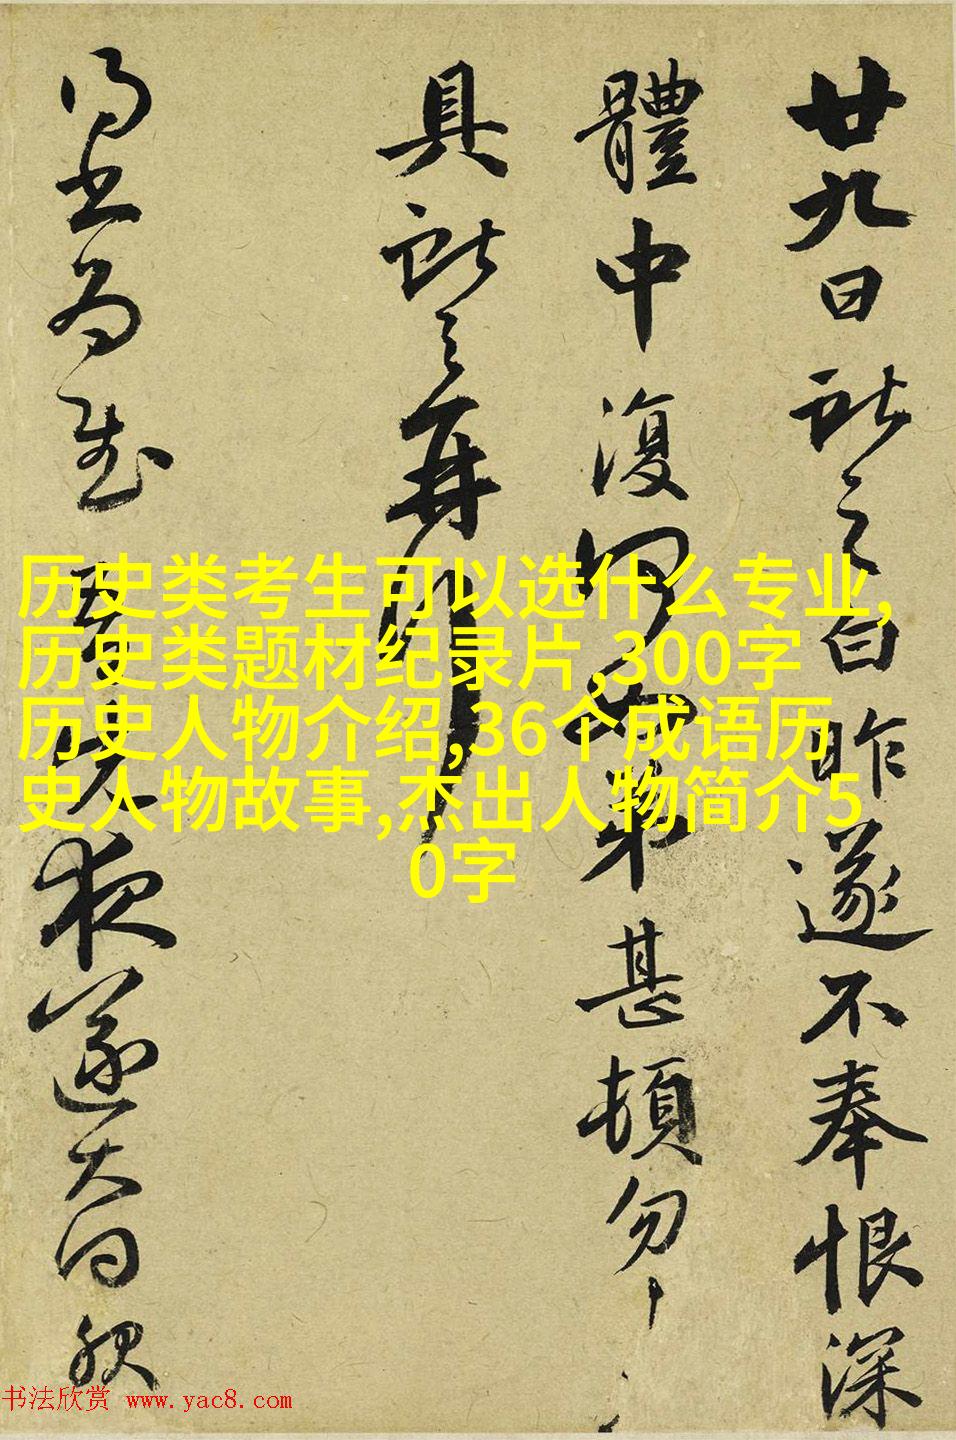 廿九日獻之白昨遂不奉恨深
體中復何如弟甚頓勿〃
具獻之再拜
得書為慰吾夜遂大
历史类考生可以选什么专业,
历史类题材纪录片,300字
历史人物介绍,36个成语历
史人物故事,杰出人物简介5
0字
书法欣赏 www.yac8.com